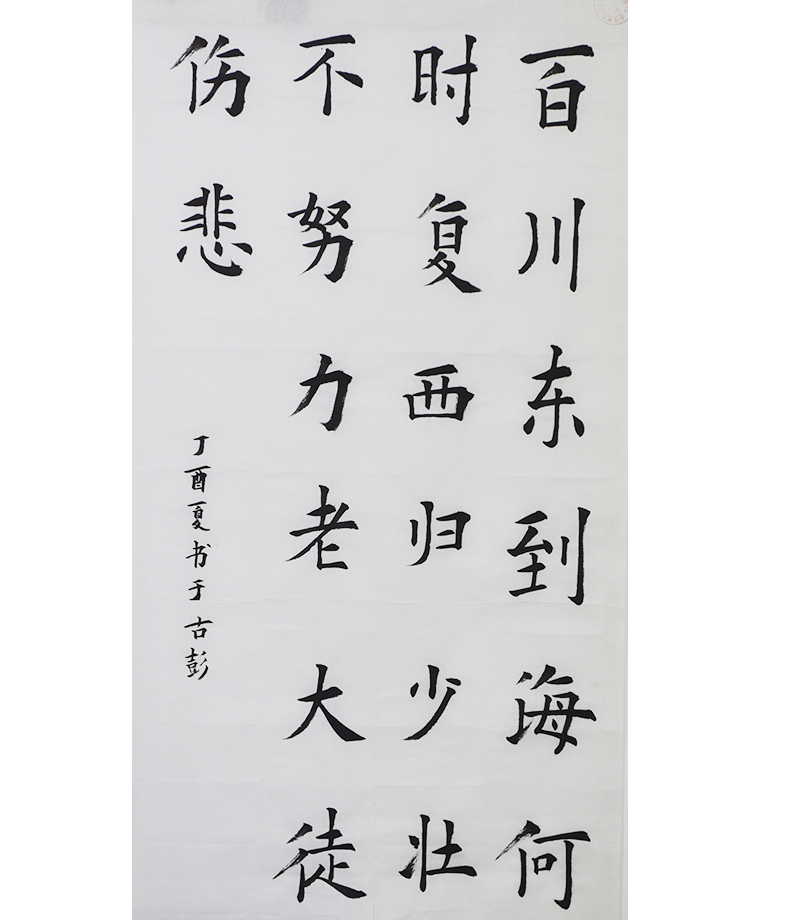 百川东到海何
时复西归少壮
不努力老大徒
伤悲
丁酉夏书于古彭